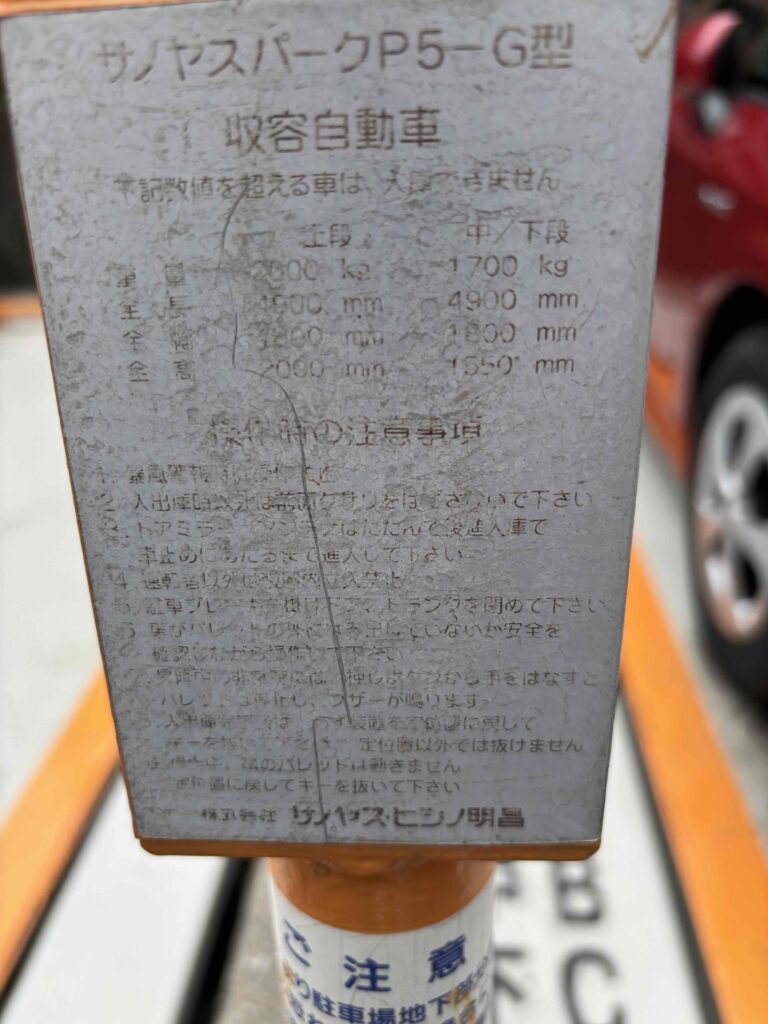 サノヤスパークP5-G型
収容自動車
記数値を超える車は、入庫できません
上段 中/下段
重量 2000 kg 1700 kg
全長 4900 mm 4900 mm
全幅 1800 mm 1800 mm
全高 2000 mm 1550 mm
操作時の注意事項
1. 暴風警報
2. 人出庫時以外は前面クサリをはずさないで下さい
3. ドアミラー はたたんで後進入庫で
車止めにあたるまで進入して下さい
4. 運転者以外 立入禁止
駐車ブレーキを掛け トランクを閉めて下さい
車がパレットの外にはみ出していないか安全を
確認しながら操作して下さい
には、押しボタンから手をはなすと
パレットは停止し、ブザーが鳴ります
を定位置に戻して
キーを抜いて下さい 定位置以外では抜けません
のパレットは動きません
定位置に戻してキーを抜いて下さい
株式会社 サノヤス・ヒシノ明昌
ご注意
り駐車場地下
B
C